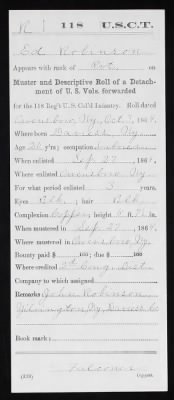 R | 118 | U.S.C.T.
Ed Robinson
Appears with rank of Pvt. on
Muster and Descriptive Roll of a Detach-
ment of U. S. Vols. forwarded
for the 118 Reg't U. S. Col'd Infantry. Roll dated
Owensboro, Ky., Oct. 7, 1864.
Where born Daviess, Ky.
Age 20 y'rs; occupation
When enlisted Sep. 27, 1864.
Where enlisted Owensboro, Ky.
For what period enlisted 3 years.
Eyes Blk.; hair Blk.
Complexion Copper; height ft. in.
When mustered in Sep. 27, 1864.
Where mustered in Owensboro, Ky.
Bounty paid $ 100; due $ 100
Where credited 2nd Cong. Dist.
Company to which assigned
Remarks: John Robinson
Ky. Daviess Co
Book mark:
(339) Copyist.